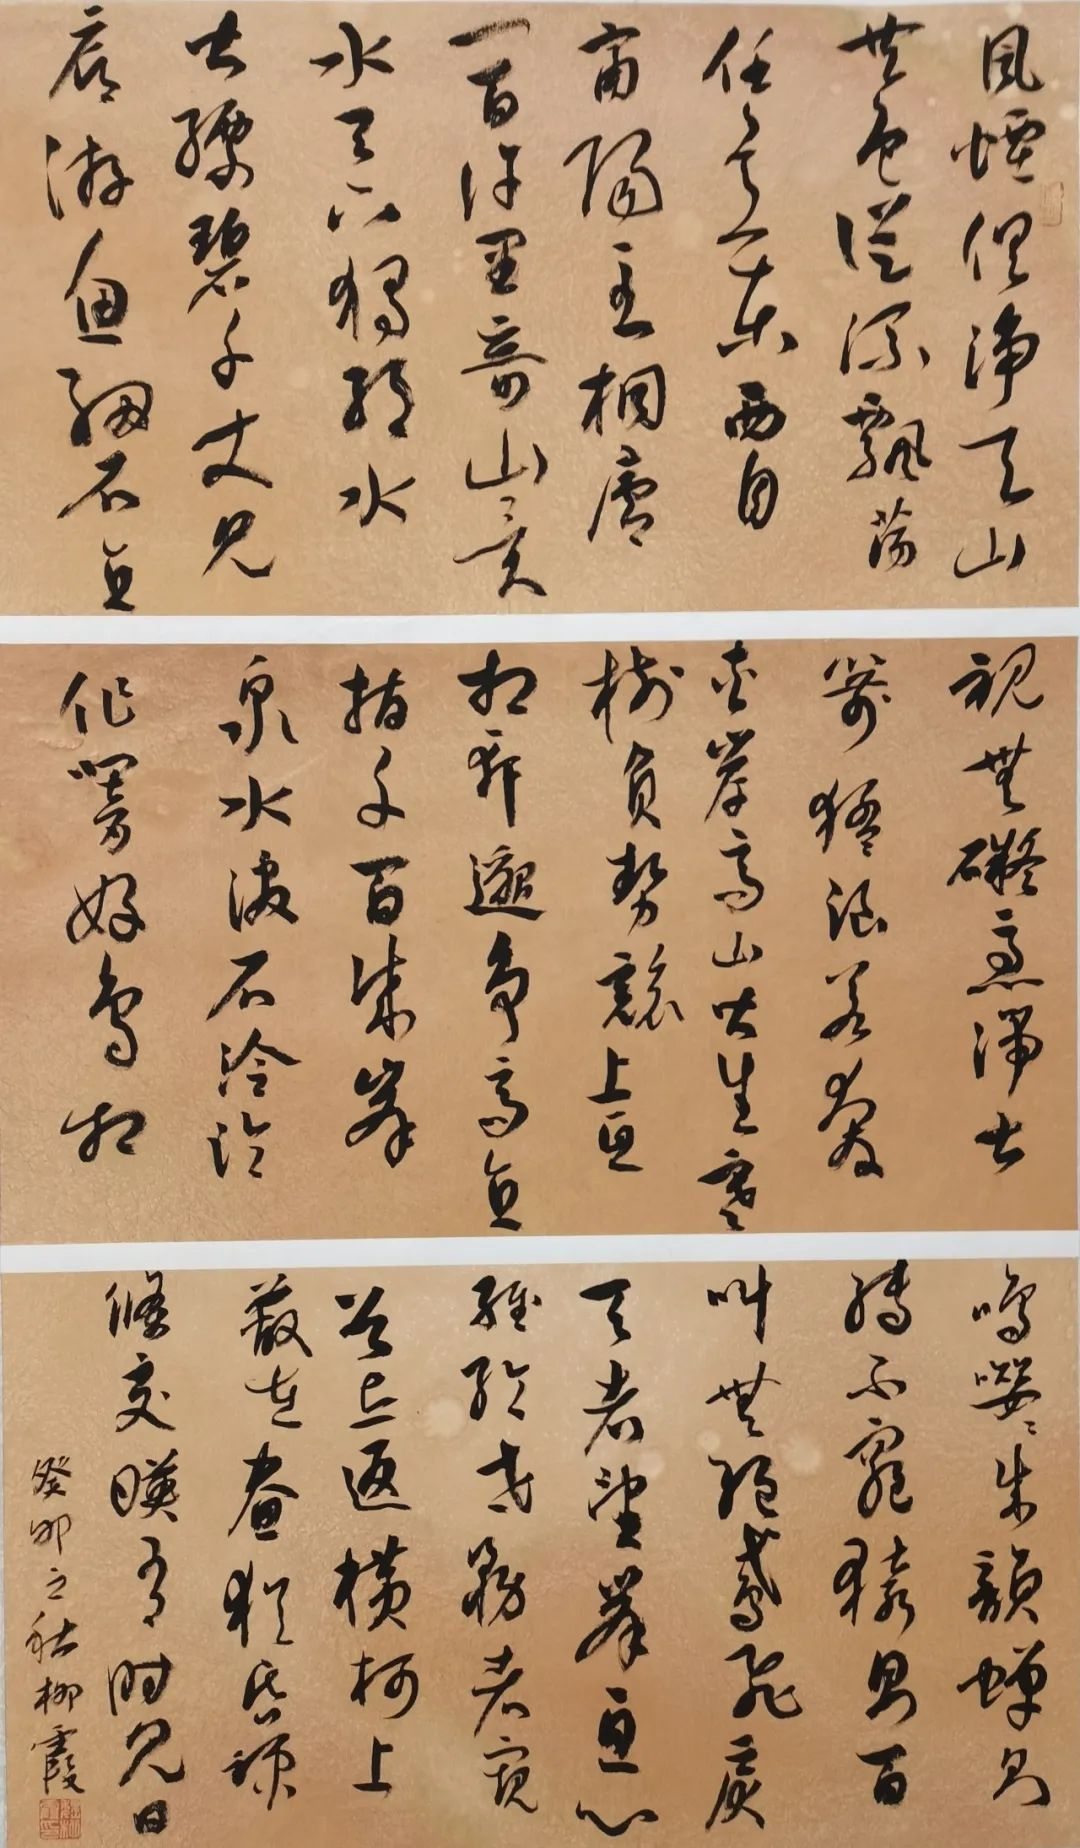 風煙俱淨天山
共色從流飄蕩
任意東西自
富陽至桐廬
一百許里奇山異
水天下獨絕水
皆縹碧千丈見
底游魚細石直
視無礙急湍甚
箭猛浪若奔
夾岸高山皆生寒
樹負勢競上互
相軒邈爭高直
指千百成峯
泉水激石泠泠
作響好鳥相
鳴嚶嚶成韻蟬則
轉不窮猿則百
叫無絕鳶飛戾
天者望峯息心
經綸世務者窺
谷忘返橫柯上
蔽在晝猶昏疎
條交映有時見日
癸卯之秋柳霞